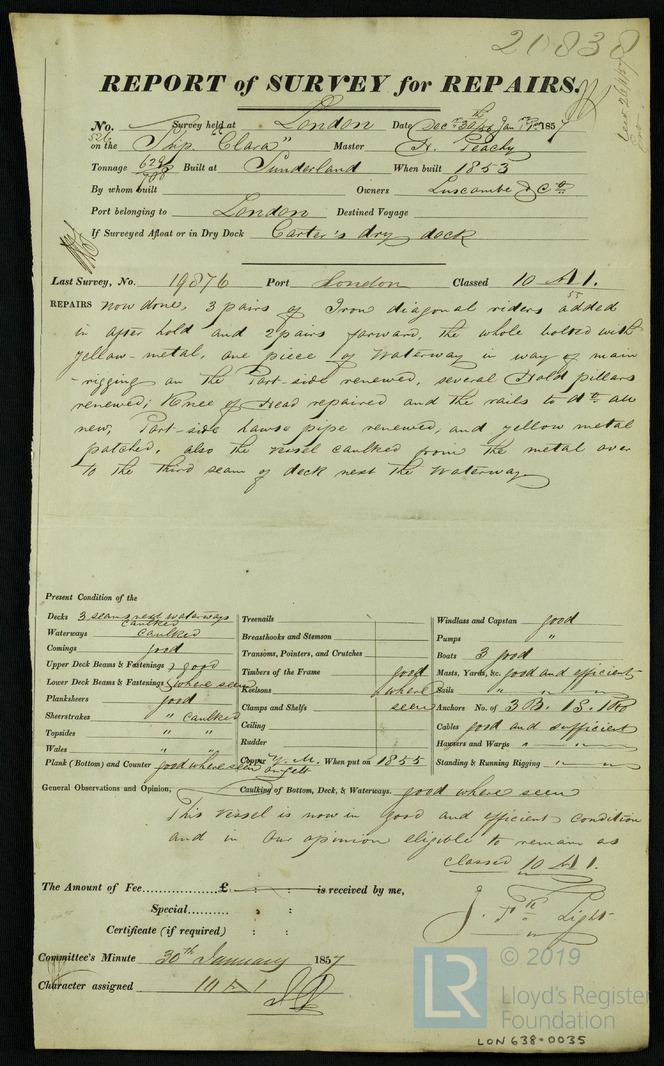 20838
REPORT of SURVEY for REPAIRS.
No. 526 Survey held at London Date Dec 30/56 Jan 1857
on the Ship "Clara" Master H. Peachy
Tonnage 629 708 Built at Sunderland When built 1853
By whom built Owners Luscombe & Co
Port belonging to London Destined Voyage
If Surveyed Afloat or in Dry Dock Carter's dry dock
Last Survey, No. 19876 Port London Classed 10 A 1. 55
REPAIRS now done, 3 pairs of Iron diagonal riders added
in after hold and 2 pairs forward, the whole bolted with
yellow-metal, one piece of Waterway in way of main
-rigging on the Port-side renewed, several Hold pillars
renewed; Knee of Head repaired and the rails to do all
new, Port-side hawse pipe renewed, and yellow metal
patched, also the vessel caulked from the metal over
to the third seam of deck next the Waterway
Present Condition of the
Decks 3 seams next waterways caulked
Waterways caulked
Comings good
Upper Deck Beams & Fastenings } good
Lower Deck Beams & Fastenings } where seen
Planksheers good
Sheerstrakes " caulked
Topsides " "
Wales " "
Plank (Bottom) and Counter good where seen
Treenails
Breasthooks and Stemson
Transoms, Pointers, and Crutches
Timbers of the Frame good
Keelsons where
Clamps and Shelfs seen
Ceiling
Rudder
Copper Y. M. on felt When put on 1855
Windlass and Capstan good
Pumps "
Boats 3 good
Masts, Yards, &c. good and efficient
Sails " " "
Anchors No. of 3 B. 1 S. 1 K
Cables good and sufficient
Hawsers and Warps " "
Standing & Running Rigging " "
General Observations and Opinion, Caulking of Bottom, Deck, & Waterways. good where seen
This vessel is now in good and efficient condition
and in our opinion eligible to remain as
classed 10 A 1.
The Amount of Fee £ : : is received by me,
Special : :
Certificate (if required) : :
J. Light
Committee's Minute 30th January 1857
Character assigned 10 A 1
LR © 2019
Lloyd's Register
Foundation
LON 638-0035